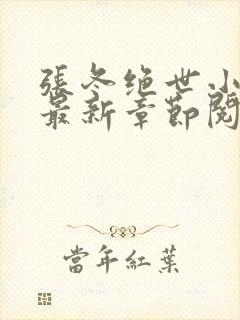 張冬绝世小
最新章節閱
當年紅葉